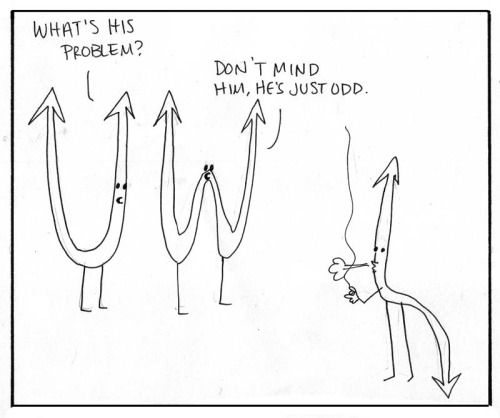 WHAT'S HIS
PROBLEM?
DON'T MIND
HIM, HE'S JUST ODD.